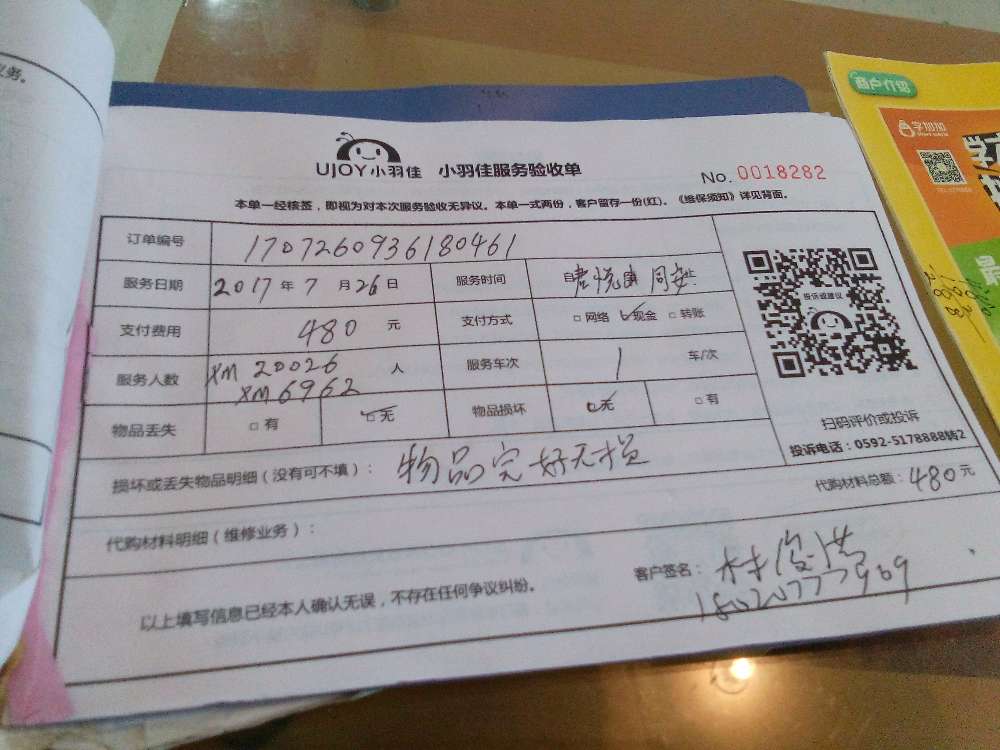 业务。
商户介绍
字加加
UJOY小羽佳 小羽佳服务验收单
No. 0018282
本单一经核签，即视为对本次服务验收无异议。本单一式两份，客户留存一份(红)。《维保须知》详见背面。
订单编号 1707260936180461
服务日期 2017 年 7 月 26 日 服务时间 自 同安
支付费用 480 元 支付方式 □ 网络 □ 现金 □ 转账
投诉或建议
服务人数 XM 20026 人 服务车次 1 车/次
XM 6962
物品丢失 □ 有 □ 无 物品损坏 □ 无 □ 有
扫码评价或投诉
投诉电话：0592-5178888转2
损坏或丢失物品明细（没有可不填）： 物品完好无损
代购材料总额：480元
代购材料明细（维修业务）：
客户签名：林
18020777909
以上填写信息已经本人确认无误，不存在任何争议纠纷。